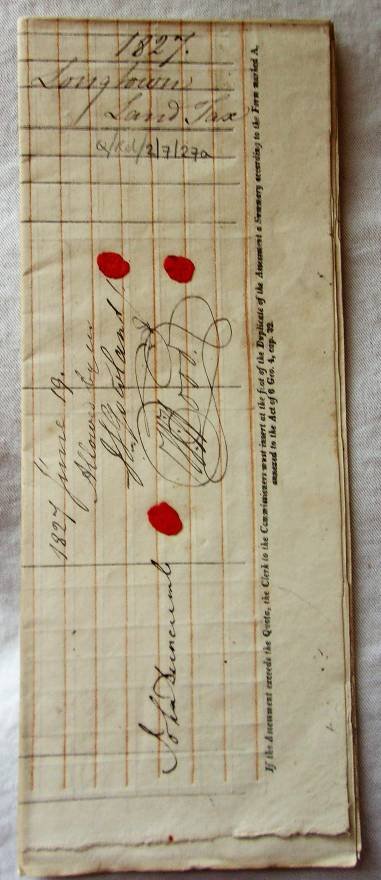 1827.
Longtown
Land Tax
Q/Rd/2/7/27a
1827 June 19.
Allowed by us
Wood
John Duncumb
If the Assessment exceeds the Quota, the Clerk to the Commissioners must insert at the foot of the Duplicate of the Assessment a Summary according to the Form marked A.
annexed to the Act of 6 Geo. 4, cap. 32.